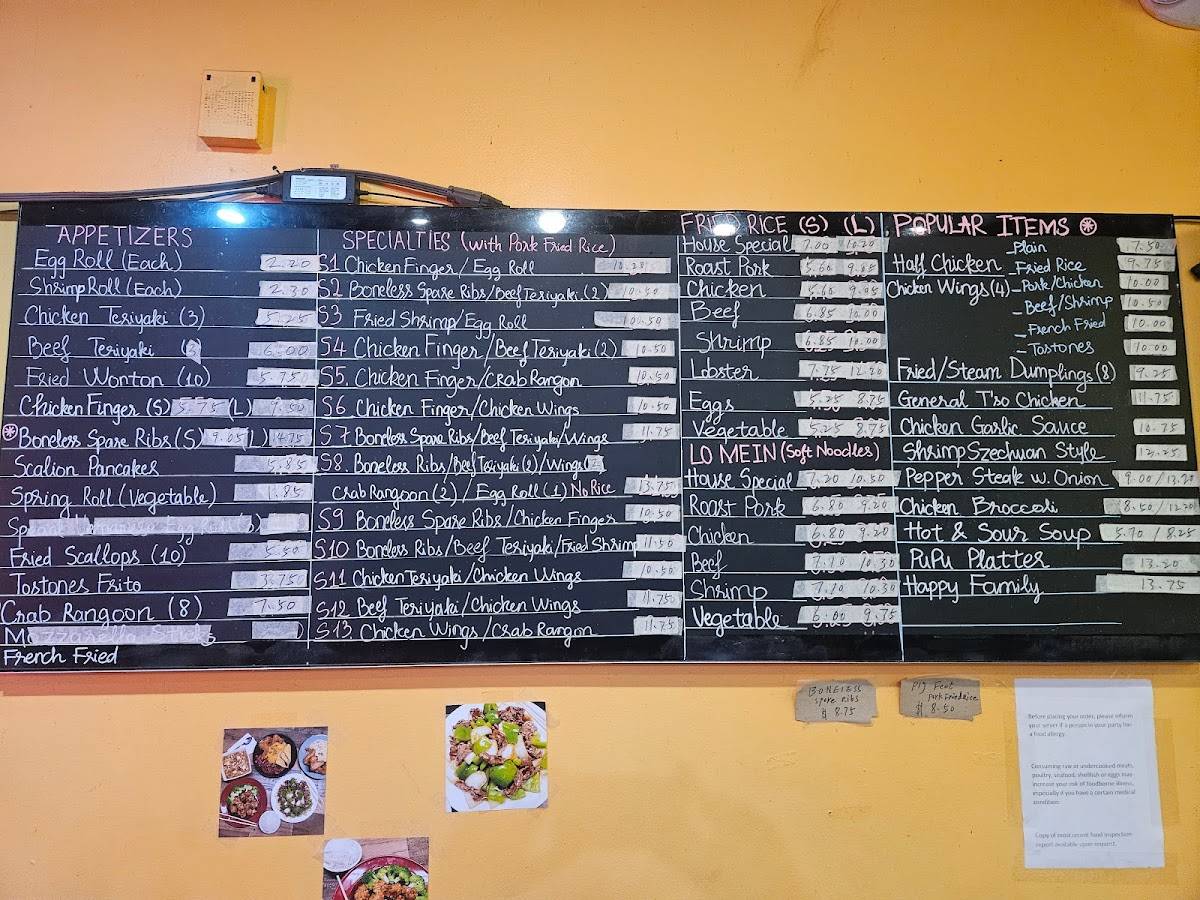 APPETIZERS
Egg Roll (Each) 2.20
Shrimp Roll (Each) 2.30
Chicken Teriyaki (3) 5.25
Beef Teriyaki (3) 6.00
Fried Wonton (10) 5.75
Chicken Finger (S) 5.75 (L) 9.50
Boneless Spare Ribs (S) 9.05 (L) 14.75
Scalion Pancakes 5.85
Spring Roll (Vegetable) 1.85
Fried Scallops (10) 5.50
Tostones Frito 3.75
Crab Rangoon (8) 7.50
Mozzarella Sticks
French Fried
SPECIALTIES (with Pork Fried Rice)
S1 Chicken Finger / Egg Roll 10.20
S2 Boneless Spare Ribs/Beef Teriyaki (2) 10.50
S3 Fried Shrimp/Egg Roll 10.50
S4 Chicken Finger/Beef Teriyaki (2) 10.50
S5. Chicken Finger/Crab Rangon 10.50
S6 Chicken Finger/Chicken Wings 10.50
S7 Boneless Spare Ribs/Beef Teriyaki/Wings 11.75
S8. Boneless Ribs/Beef Teriyaki(2)/Wings(2)
Crab Rangoon (2) / Egg Roll (1) No Rice 13.75
S9 Boneless Spare Ribs/Chicken Finger 10.50
S10 Boneless Ribs/Beef Teriyaki/Fried Shrimp 11.50
S11 Chicken Teriyaki/Chicken Wings 10.50
S12 Beef Teriyaki/Chicken Wings 11.75
S13 Chicken Wings/Crab Rangon 11.75
FRIED RICE (S) (L)
House Special 7.00 10.20
Roast Pork 5.60 9.05
Chicken 5.60 9.05
Beef 6.85 10.00
Shrimp 6.85 10.00
Lobster 7.75 12.20
Eggs 5.25 8.75
Vegetable 5.25 8.75
LO MEIN (Soft Noodles)
House Special 7.20 10.50
Roast Pork 6.80 9.20
Chicken 6.80 9.20
Beef 7.10 10.30
Shrimp 7.10 10.30
Vegetable 6.00 9.75
POPULAR ITEMS
Plain 7.50
Half Chicken - Fried Rice 9.75
Chicken Wings (4) - Pork/Chicken 10.00
- Beef/Shrimp 10.50
- French Fried 10.00
- Tostones 10.00
Fried/Steam Dumplings (8) 9.25
General Tso Chicken 11.75
Chicken Garlic Sauce 10.75
Shrimp Szechuan Style 12.25
Pepper Steak w. Onion 9.00 / 13.20
Chicken Broccoli 8.50 / 12.20
Hot & Sour Soup 5.70 / 8.25
PuPu Platter 13.20
Happy Family 13.75
BONELESS
spare ribs
$ 8.75
Pig Feet
pork fried rice
$ 8.50
Before placing your order, please inform
your server if a person in your party has
a food allergy.
Consuming raw or undercooked meats,
poultry, seafood, shellfish or eggs may
increase your risk of foodborne illness,
especially if you have a certain medical
condition.
Copy of most recent food inspection
report available upon request.